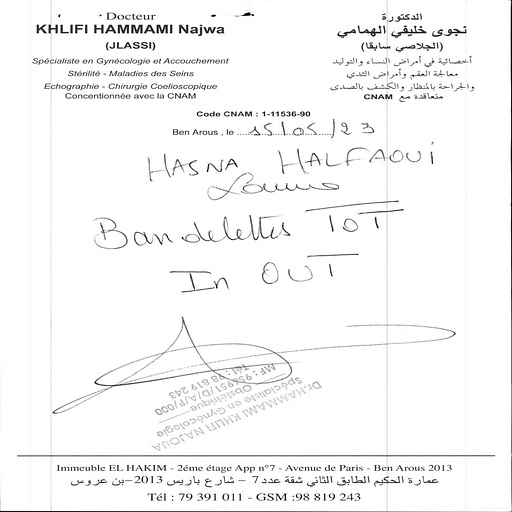 Docteur
KHLIFI HAMMAMI Najwa
(JLASSI)
Spécialiste en Gynécologie et Accouchement
Stérilité - Maladies des Seins
Echographie - Chirurgie Coelioscopique
Concentionnée avec la CNAM
الدكتورة
نجوى خليفي الهمامي
(الجلاصي سابقا)
أخصائية في أمراض النساء والتوليد
معالجة العقم وأمراض الثدي
والجراحة بالمنظار والكشف بالصدى
متعاقدة مع CNAM
Code CNAM : 1-11536-90
Ben Arous , le 15/05/23
HASNA HALFAOUI
Bandelettes TOT
In OUT
Dr.HAMMAMI KHLIFI NAJOUA
Spécialiste en Gynécologie
Obstétrique
MF: 956951/D/A/P/000
Tél : 98 819 243
Immeuble EL HAKIM - 2éme étage App n°7 - Avenue de Paris - Ben Arous 2013
عمارة الحكيم الطابق الثاني شقة عدد 7 – شارع باريس 2013–بن عروس
Tél : 79 391 011 - GSM :98 819 243